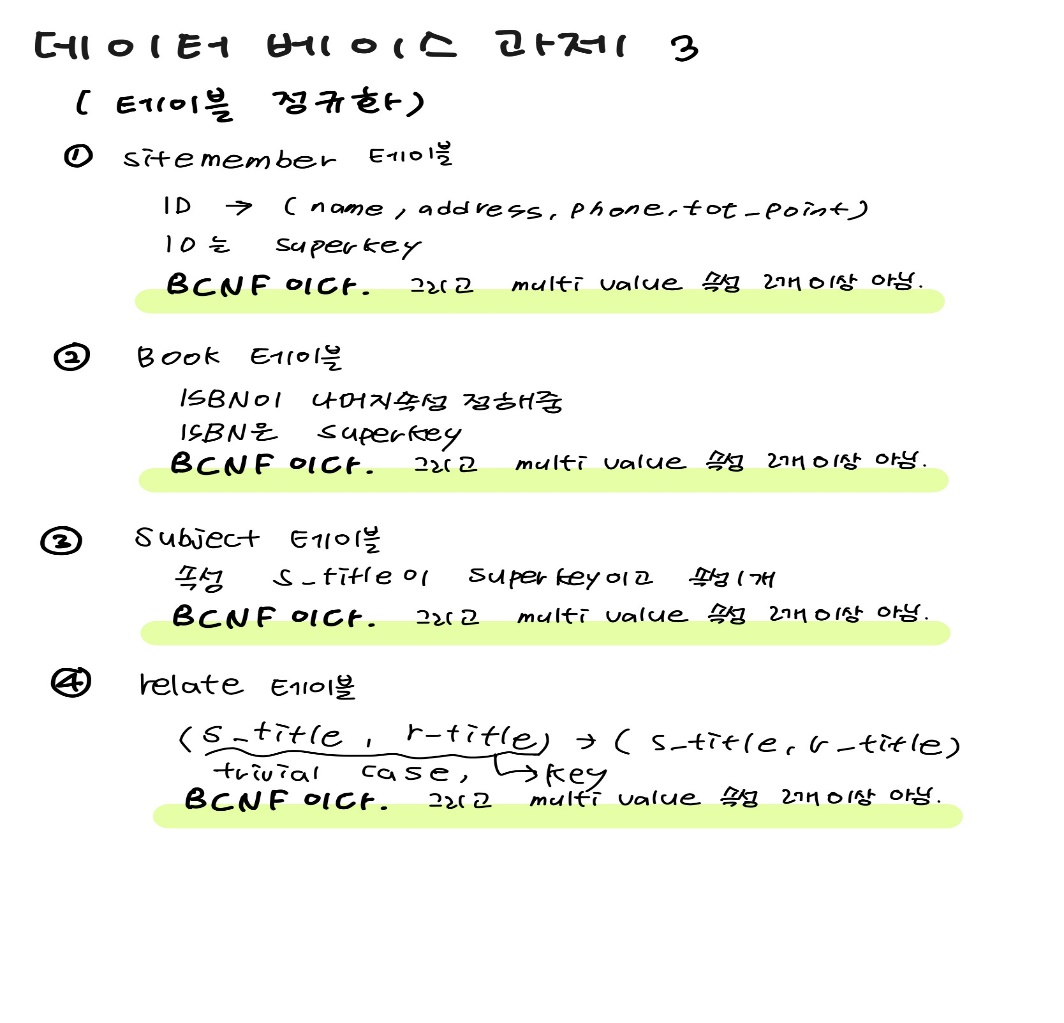 데이터 베이스 과제 3
( 테이블 정규화 )
① sitemember 테이블
ID → ( name, address, phone, tot_point )
ID는 superkey
BCNF 이다. 그리고 multi value 속성 2개 이상 아님.
② Book 테이블
ISBN이 나머지속성 정해줌
ISBN은 superkey
BCNF 이다. 그리고 multi value 속성 2개 이상 아님.
③ Subject 테이블
속성 s_title이 superkey이고 속성 1개
BCNF 이다. 그리고 multi value 속성 2개 이상 아님.
④ relate 테이블
( s_title, r_title ) → ( s_title, r_title )
trivial case, → key
BCNF 이다. 그리고 multi value 속성 2개 이상 아님.